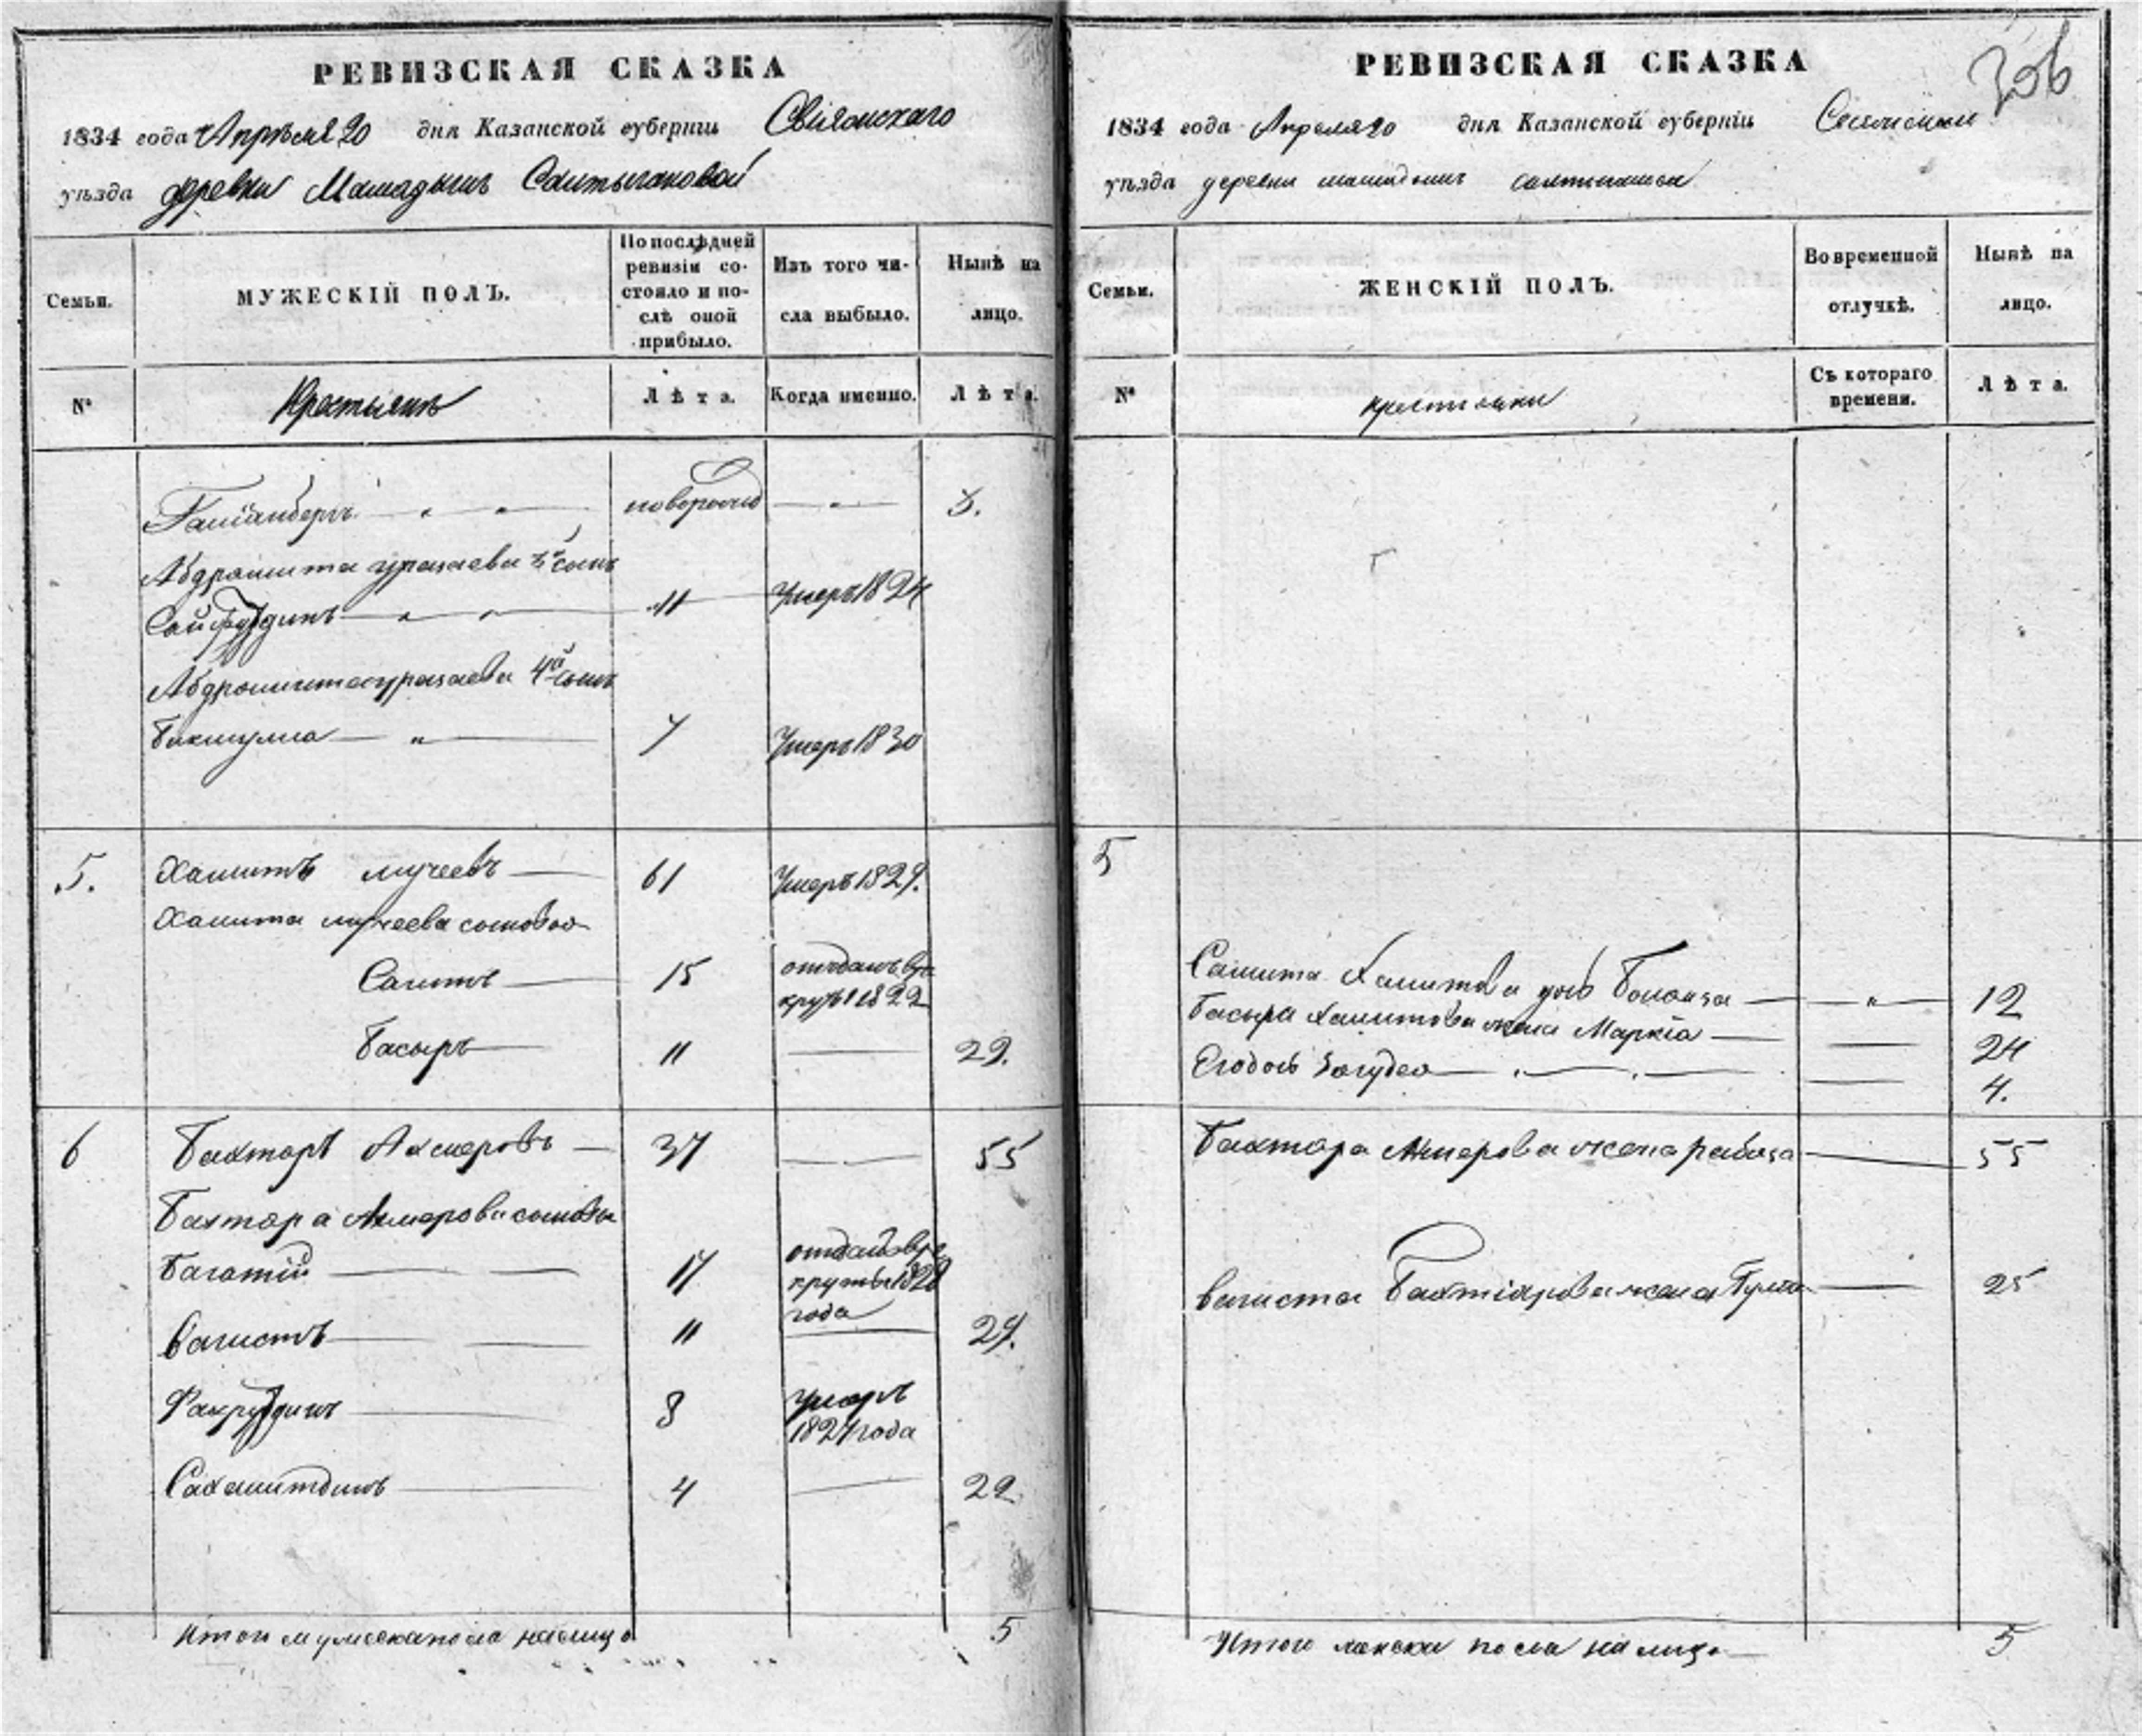 РЕВИЗСКАЯ СКАЗКА
1834 года Апреля 20 дня Казанской губерніи Свіяжскаго
уѣзда деревни Мамадышъ
Семьи.
МУЖЕСКІЙ ПОЛЪ.
По послѣдней ревизіи со-
стояло и по-
слѣ оной
прибыло.
Изъ того чи-
сла выбыло.
Нынѣ на
лицо.
№
Крестьянъ
Лѣта.
Когда именно.
Лѣта.
новорожд 3.
Абдрашита уразаева сынъ
Сайфудинъ 11 Умеръ 1824
Абдрашита уразаева 4й сынъ
7 Умеръ 1830
5. Хамитъ мучеевъ 61 Умеръ 1829.
Хамита мучеева сыновья
Сагитъ 15 отданъ в ре
круты 1822
Басыръ 11 29.
6 Бахтяръ Ахмеровъ 37 55
Бахтяра Ахмерова сыновья
Багатій 17 отданъ в ре
круты 1828
года
Вагистъ 11 29.
Фахрудинъ 8 умеръ
1827 года
4 22
Итого мужеска пола налицо 5
306
РЕВИЗСКАЯ СКАЗКА
1834 года Апреля 20 дня Казанской губерніи
уѣзда деревни
Семьи.
ЖЕНСКІЙ ПОЛЪ.
Во временной
отлучкѣ.
Нынѣ на
лицо.
№
крестьянки
Съ котораго
времени.
Лѣта.
5
Хамитова 12
Басыра Хамитова жена Маркіа 24
4.
Бахтяра Ахмерова жена 55
Вагиста Бахтіярова жена 25
Итого женска пола на лицо 5